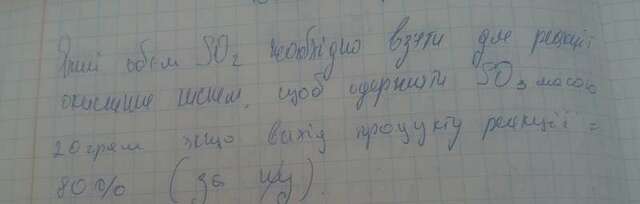 Який обєм SO2 необхідно взяти для реакції
окислення киснем, щоб одержати SO3 масою
20 грам якщо вихід продукту реакції =
80% (за н/у)